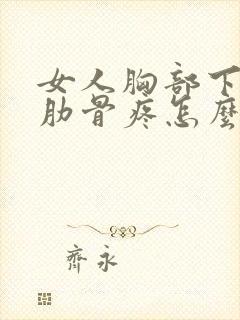 女人胸部下
肋骨疼怎麼
齊永